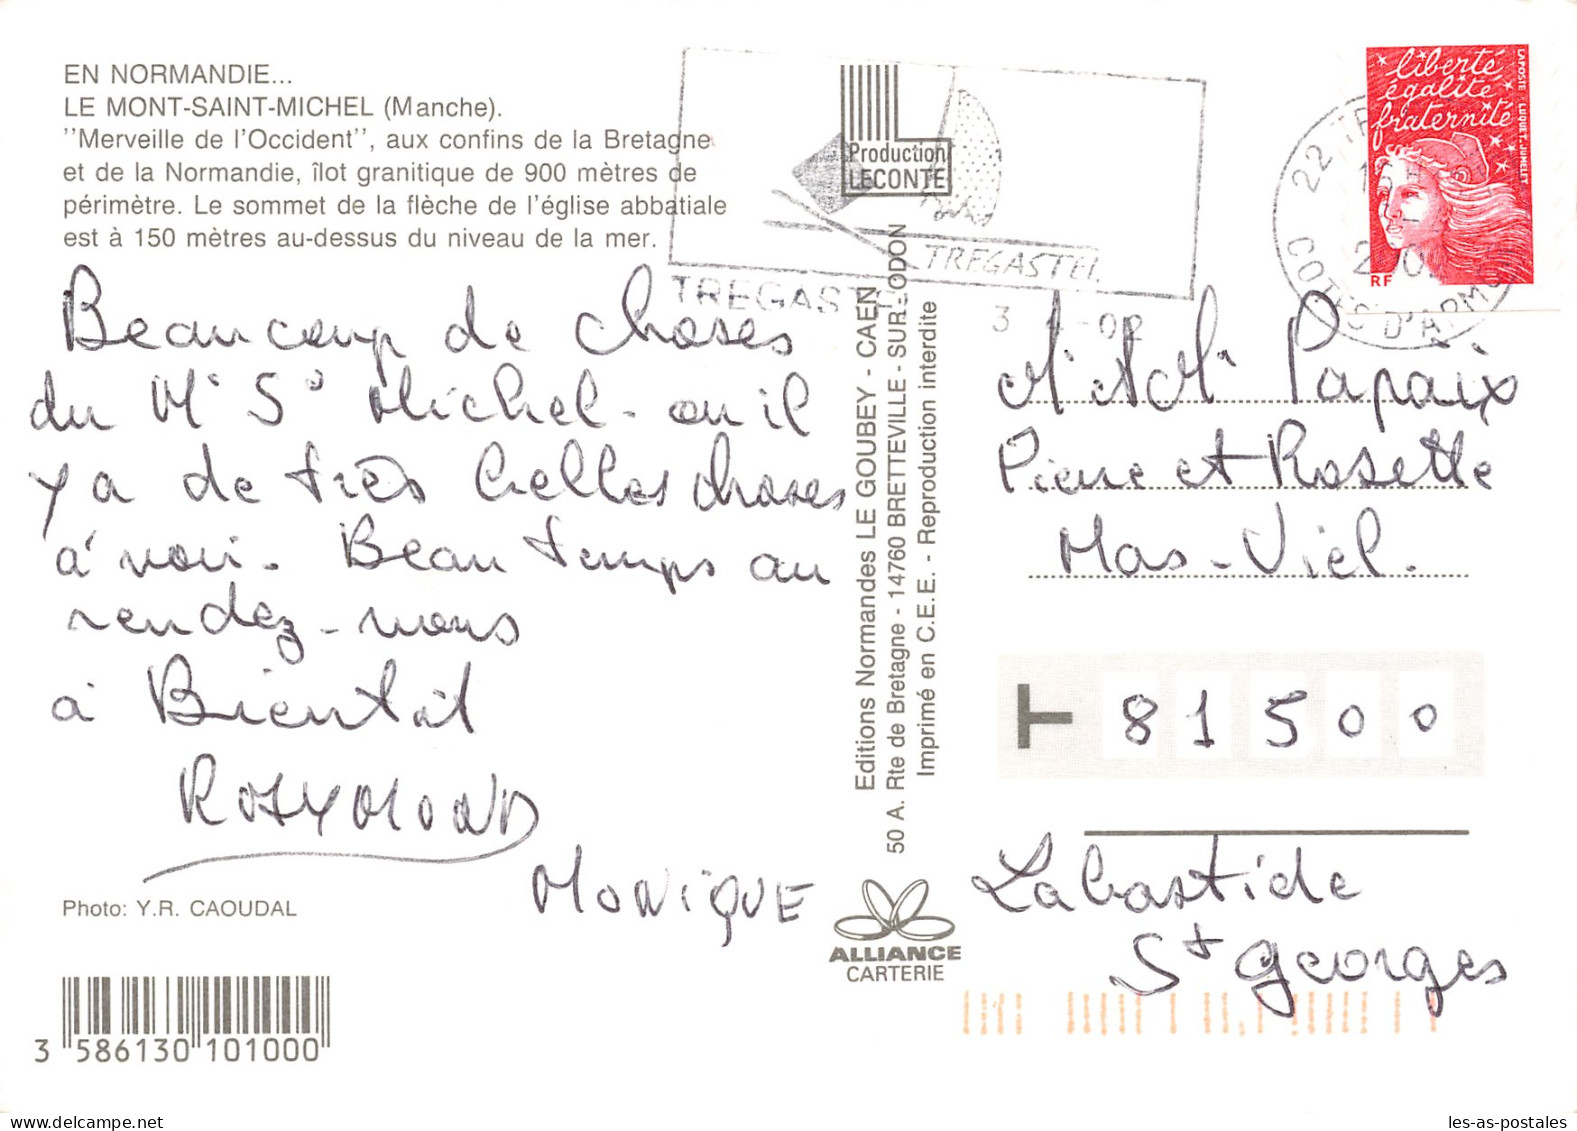 EN NORMANDIE...
LE MONT-SAINT-MICHEL (Manche).
''Merveille de l'Occident'', aux confins de la Bretagne
et de la Normandie, îlot granitique de 900 mètres de
périmètre. Le sommet de la flèche de l'église abbatiale
est à 150 mètres au-dessus du niveau de la mer.
Beaucoup de choses
du Mt St Michel - ou il
y a de très belles choses
à voir. Beau temps au
rendez-vous
à Bientôt
ROSYMOND
MONIQUE
Photo: Y.R. CAOUDAL
3 586130 101000
Production
LECONTE
TREGASTEL
TREGASTEL
3 - 4 - 02
22
COTES D'ARMOR
liberté
égalité
fraternité
LA POSTE LUQUET, JUMELET
RF
Editions Normandes LE GOUBEY - CAEN
50 A. Rte de Bretagne - 14760 BRETTEVILLE - SUR - ODON
Imprimé en C.E.E. - Reproduction interdite
ALLIANCE
CARTERIE
Mr et Me Papaix
Pierre et Rosette
Mas-Viel.
81500
Labastide
St Georges
les-as-postales